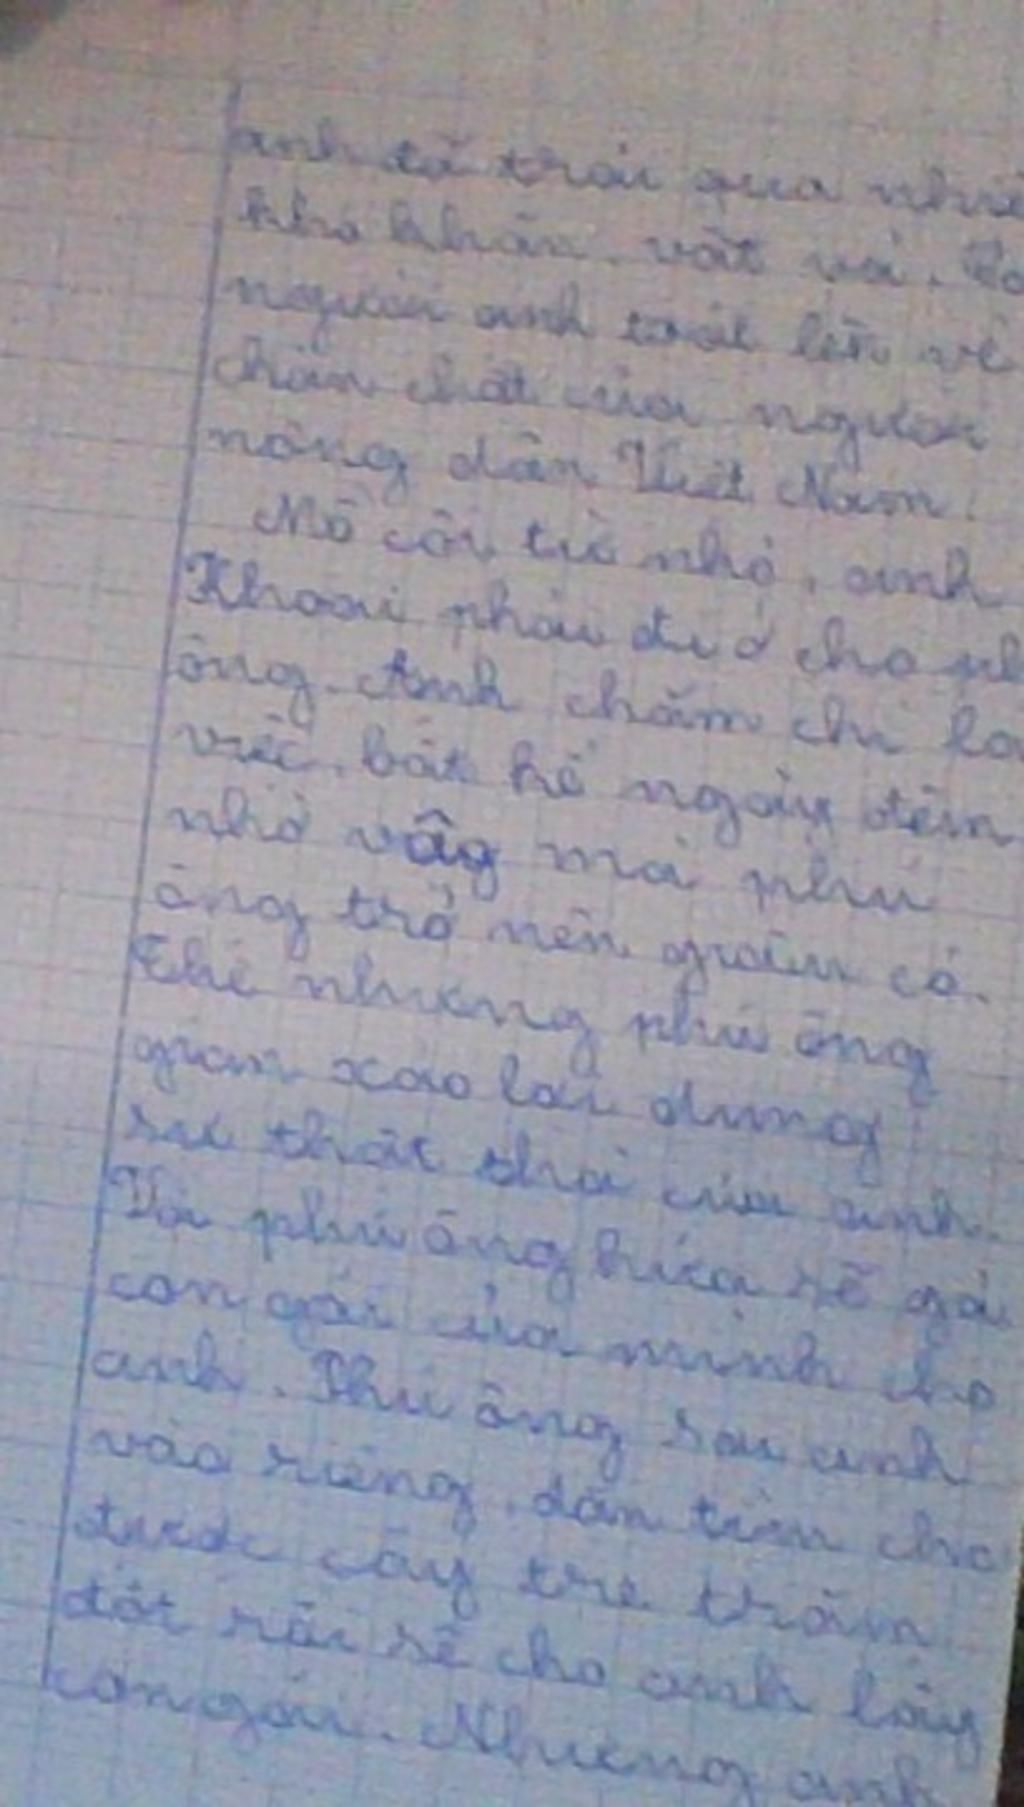 anh đã trải qua
khó khăn, vất vả.
người anh toát lên vẻ
chân chất của người
nông dân Việt Nam.
Mồ côi từ nhỏ, anh
Khoai phải đi ở cho
ông. Anh chăm chỉ
việc, bất kể ngày đêm
nhờ vậy mà phú
ông trở nên giàu có.
Thế nhưng phú ông
gian xảo lợi dụng
sự thật thà của anh.
Vì phú ông hứa sẽ gả
con gái của mình cho
anh. Phú ông sai anh
vào rừng, dặn tìm cho
được cây tre trăm
đốt rồi sẽ cho anh lấy
con gái. Nhưng anh